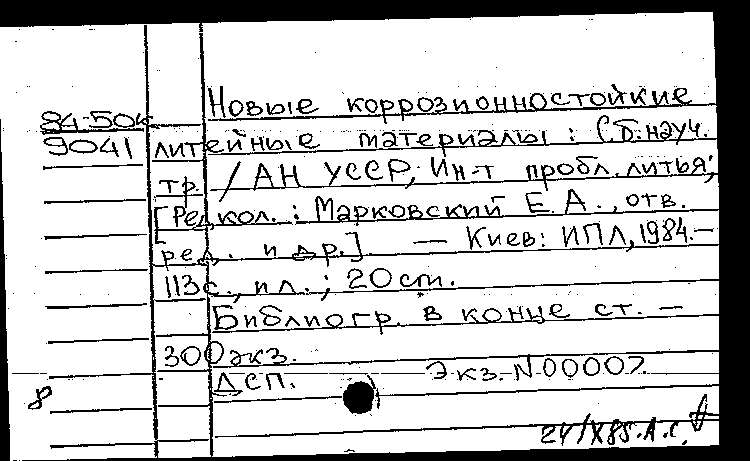 Новые коррозионностойкие
84-50к
9041 литейные материалы: Сб. науч.
тр. /АН УССР, Ин-т пробл. литья;
[Редкол.: Марковский Е.А., отв.
ред. и др.] — Киев: ИПЛ, 1984.—
113с., ил.; 20 cm.
Библиогр. в конце ст. —
300 экз.
ДСП. Экз. N 00007.
8
24/X85.А.С.